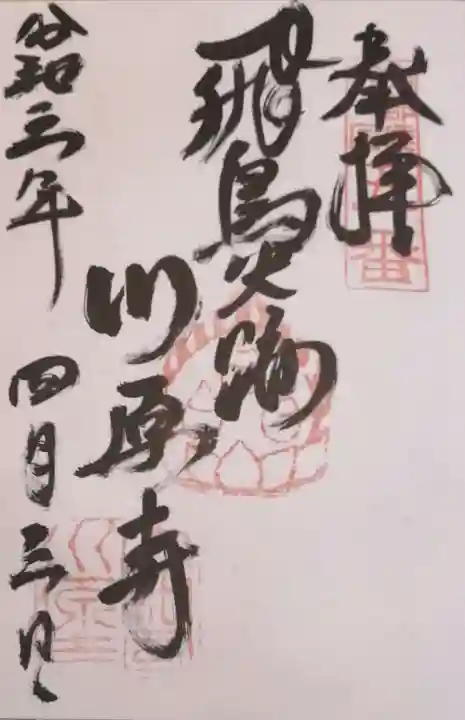 奉拝
飛鳥大跡
川原寺
令和三年 四月三日